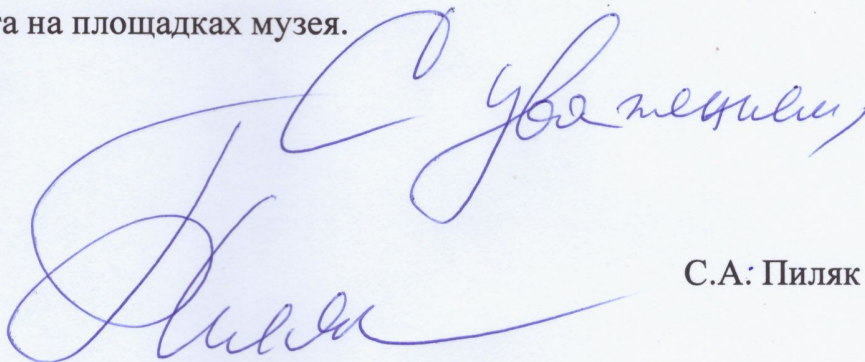 та на площадках музея.
С уважением,
Пиляк
С.А. Пиляк